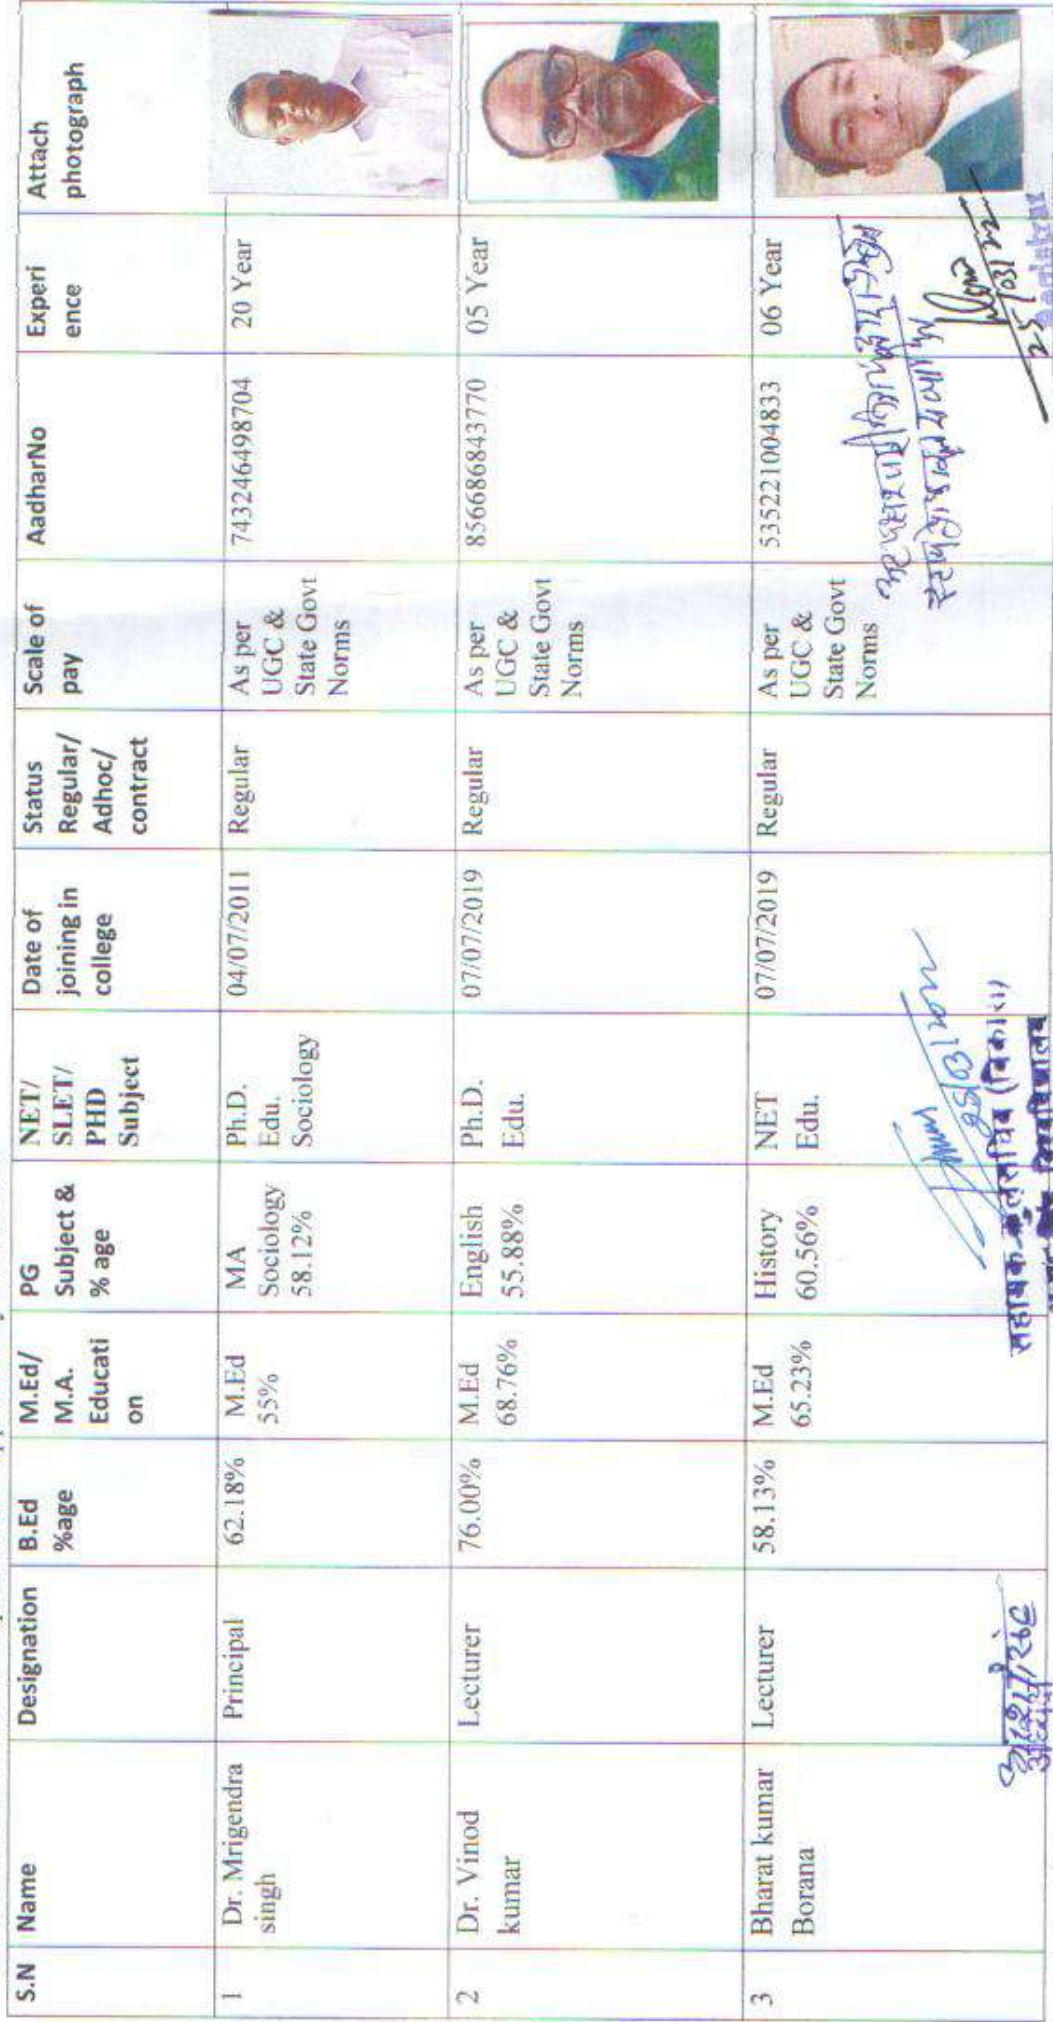 S.N
Name
Designation
B.Ed
%age
M.Ed/
M.A.
Educati
on
PG
Subject &
% age
NET/
SLET/
PHD
Subject
Date of
joining in
college
Status
Regular/
Adhoc/
contract
Scale of
pay
AadharNo
Experi
ence
Attach
photograph
1
Dr. Mrigendra
singh
Principal
62.18%
M.Ed
55%
MA
Sociology
58.12%
Ph.D.
Edu.
Sociology
04/07/2011
Regular
As per
UGC &
State Govt
Norms
743246498704
20 Year
2
Dr. Vinod
kumar
Lecturer
76.00%
M.Ed
68.76%
English
55.88%
Ph.D.
Edu.
07/07/2019
Regular
As per
UGC &
State Govt
Norms
856686843770
05 Year
3
Bharat kumar
Borana
Lecturer
58.13%
M.Ed
65.23%
History
60.56%
NET
Edu.
07/07/2019
Regular
As per
UGC &
State Govt
Norms
535221004833
06 Year
25/03/22
सहायक कुलसचिव (विकास)
विश्वविद्यालय